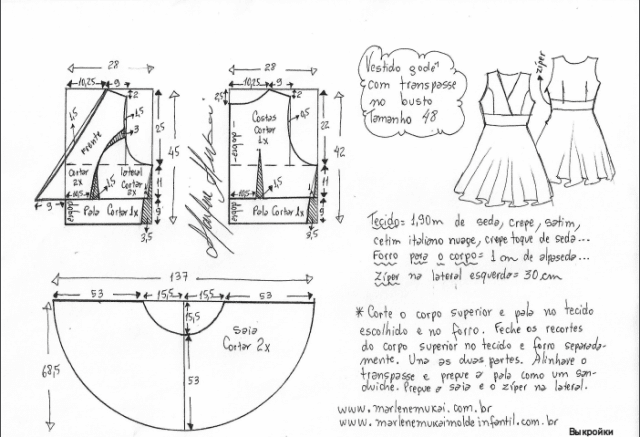 28
10,25
9
2
1,5
1,5
3
Frente
25
45
Cortar
2x
lateral
Cortar
2x
10,5
1,5
11
9
dobra
Pala Cortar 1x
9
3,5
Marlene Mukai
28
10,25
9
2
0,5
Costas
Cortar
1x
dobra
22
42
10,5
11
1
dobra
Pala Cortar 1x
9
3,5
Vestido godê
com transpasse
no busto
Tamanho 48
zíper
137
53
15,5
15,5
53
15,5
Saia
Cortar 2x
68,5
53
Tecido= 1,90m de seda, crepe, satim,
cetim italiano nuage, crepe toque de seda...
Forro para o corpo= 1 cm de alpaseda...
Zíper na lateral esquerda= 30 cm
* Corte o corpo superior e pala no tecido
escolhido e no forro. Feche os recortes
do corpo superior no tecido e forro separada-
mente. Una as duas partes. Alinhave o
transpasse e pregue a pala como um san-
duíche. Pregue a saia e o zíper na lateral.
www.marlenemukai.com.br
www.marlenemukaimoldeinfantil.com.br
Выкройки